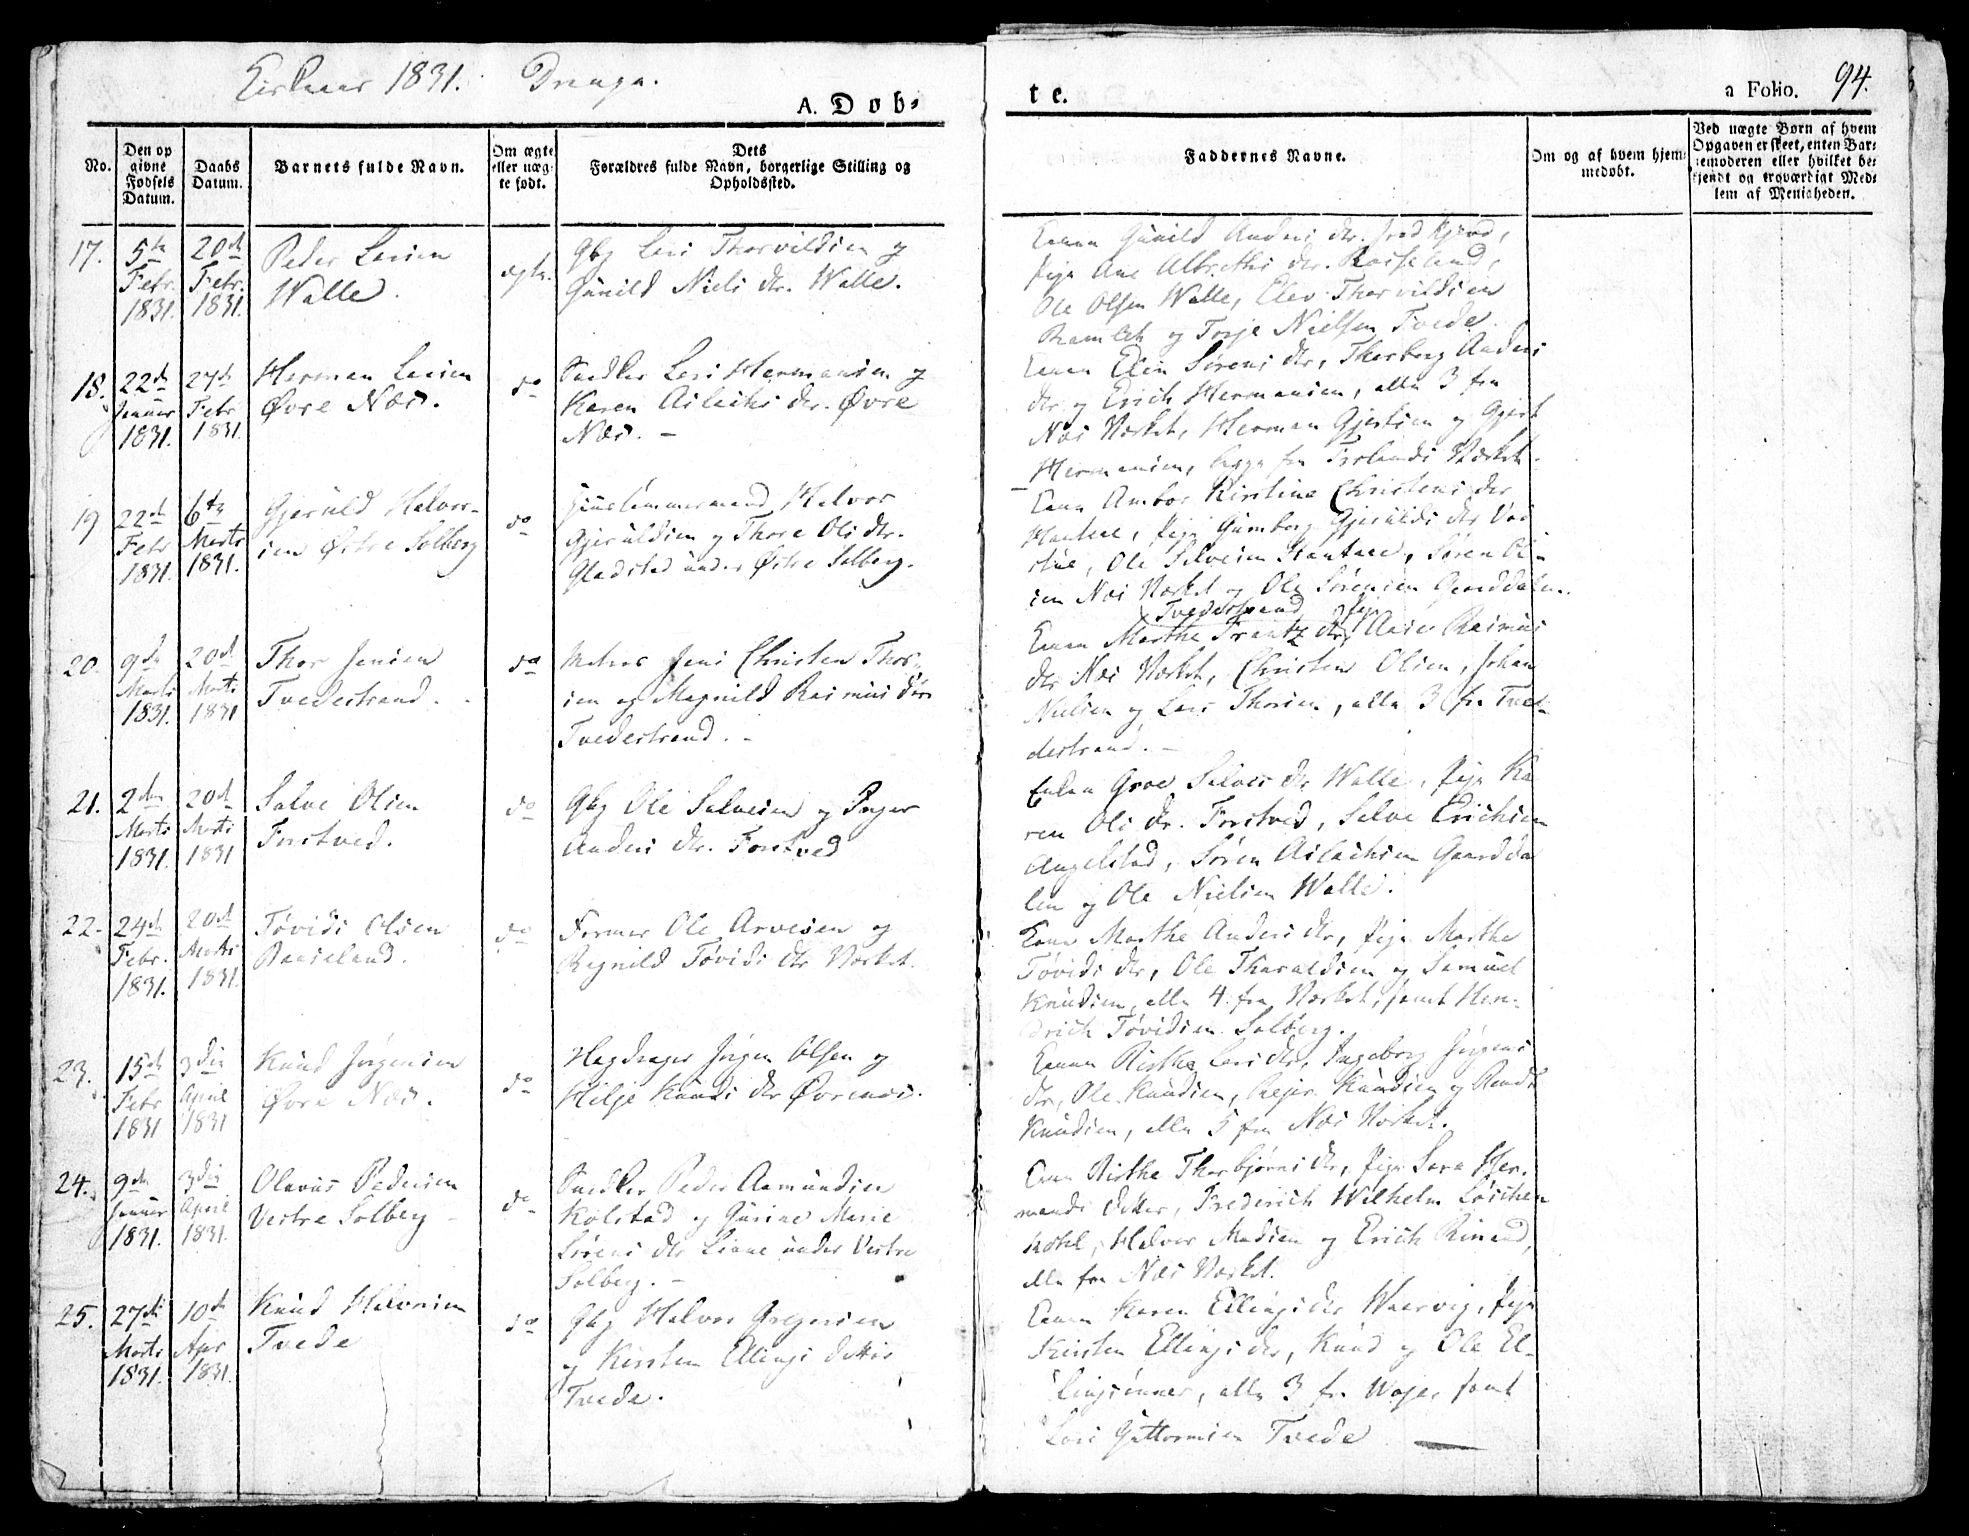 1831.
A. Døb-
te.
a Folio. 94.
No.
Den op
givne
Fødsels
Datum.
Daabs
Datum.
Barnets fulde Navn.
Om ægte
eller uæg-
te født.
Dets
Forældres fulde Navn, borgerlige Stilling og
Opholdssted.
Faddernes Navne.
Om og af hvem hjem-
medøbt.
Ved uægte Børn af hvem
Opgaven er skeet, enten Bar-
nemoderen eller hvilket be-
kjendt og troværdigt Med-
lem af Menigheden.
17.
5te
Febr.
1831.
20de
Febr.
1831.
Peder Larsen
Walle.
ægte.
Gbg Lars Thorvildsen og
Gunild Niels dtr. Walle.
Gunild Anders dtr.
Pige Ane Albrethi dtr. Roiseland,
Ole Olsen Walle, Elev Thorvildsen
og Torje Nielsen Tvede.
18.
22de
Januar
1831.
27de
Febr
1831.
Herman Larsen
Øvre Næs.
do
Lars Hermansen og
Karen Aslachs dtr. Øvre
Næs. -
Konen Elen Sørens dtr, Thorborg Anders
dtr og Erich Hermansen, alle 3 fra
Næs Værket, Herman Gjertsen og Gjert
Hermansen, begge fra Værket.
19
22de
Febr
1831.
6te
Marts
1831.
Gjeruld Halvor-
sen Østre Solberg
do
Halvor
Gjeruldsen og Thore Ols dtr.
Gladstad under Østre Solberg.
Kirstine Christens dtr
Pige Gumborg Gjerulds dtr
Ole Salvesen Søren
sen Næs Værket og Ole Sørensen Gaarddalen.
20.
9de
Marts
1831.
20de
Marts
1831
Thor Jensen
Tvedestrand.
do
Matros Jens Christen Thor-
sen og Magnild Rasmus dtr
Tvedestrand. -
Tvedestrand Pige
Konen Marthe Frantz dtr, Aase Rasmus
dtr Næs Værket, Christen Olsen, Johan
Nielsen og Lars Thorsen, alle 3 fra Tve-
destrand. -
21.
2den
Marts
1831.
20de
Marts
1831
Salve Olsen
Fostved.
do
Gbg Ole Salvesen og Inger
Anders dtr. Fostved
Groe Salves dtr Walle, Pige Ka
ren Ols dtr. Fostved, Salve Erichsen
Angelstad, Søren Aslachsen Gaardda
len og Ole Nielsen Walle.
22.
24de
Febr.
1831.
20de
Marts
1831.
Tøvids Olsen
Baaseland.
do
Former Ole Arvesen og
Regnild Tøvids dtr Værket.
Kone Marthe Anders dtr, Pige Marthe
Tøvids dtr, Ole Tharaldsen og Samuel
Knudsen, alle 4 fra Værket, samt Hen-
drich Tøvidsen Solberg.
23.
15de
Febr
1831
3die
April
1831
Knud Jørgensen
Øvre Næs.
do
Jørgen Olsen og
Hilje Knuds dtr Øvrenæs.
Konen Birthe Lars dtr, Ingeborg Jørgens
dtr, Ole Knudsen, Knudsen og
Knudsen, alle 5 fra Næs Værket.
24.
9de
Januar
1831.
3die
April
1831.
Olavus Pedersen
Vestre Solberg
do
Peder Aamundsen
Kolstad og Gurine Marie
Sørens dtr under Vestre
Solberg. -
Kone Birthe Thorbjørns dtr, Pige Sara Her-
mands datter, Frederich Wilhelm
Halvor Madsen og Erich
alle fra Næs Værket.
25.
27de
Marts
1831.
10de
Apr
1831.
Knud Halvorsen
Tvede
do
Gbg Halvor Gregersen
og Kirsten Ellings datter
Tvede.
Konen Karen Ellings dtr Pige
Kirsten Ellings dtr, Knud og Ole El-
lingsønner, alle 3 fra samt
Lars Guttormsen Tvede